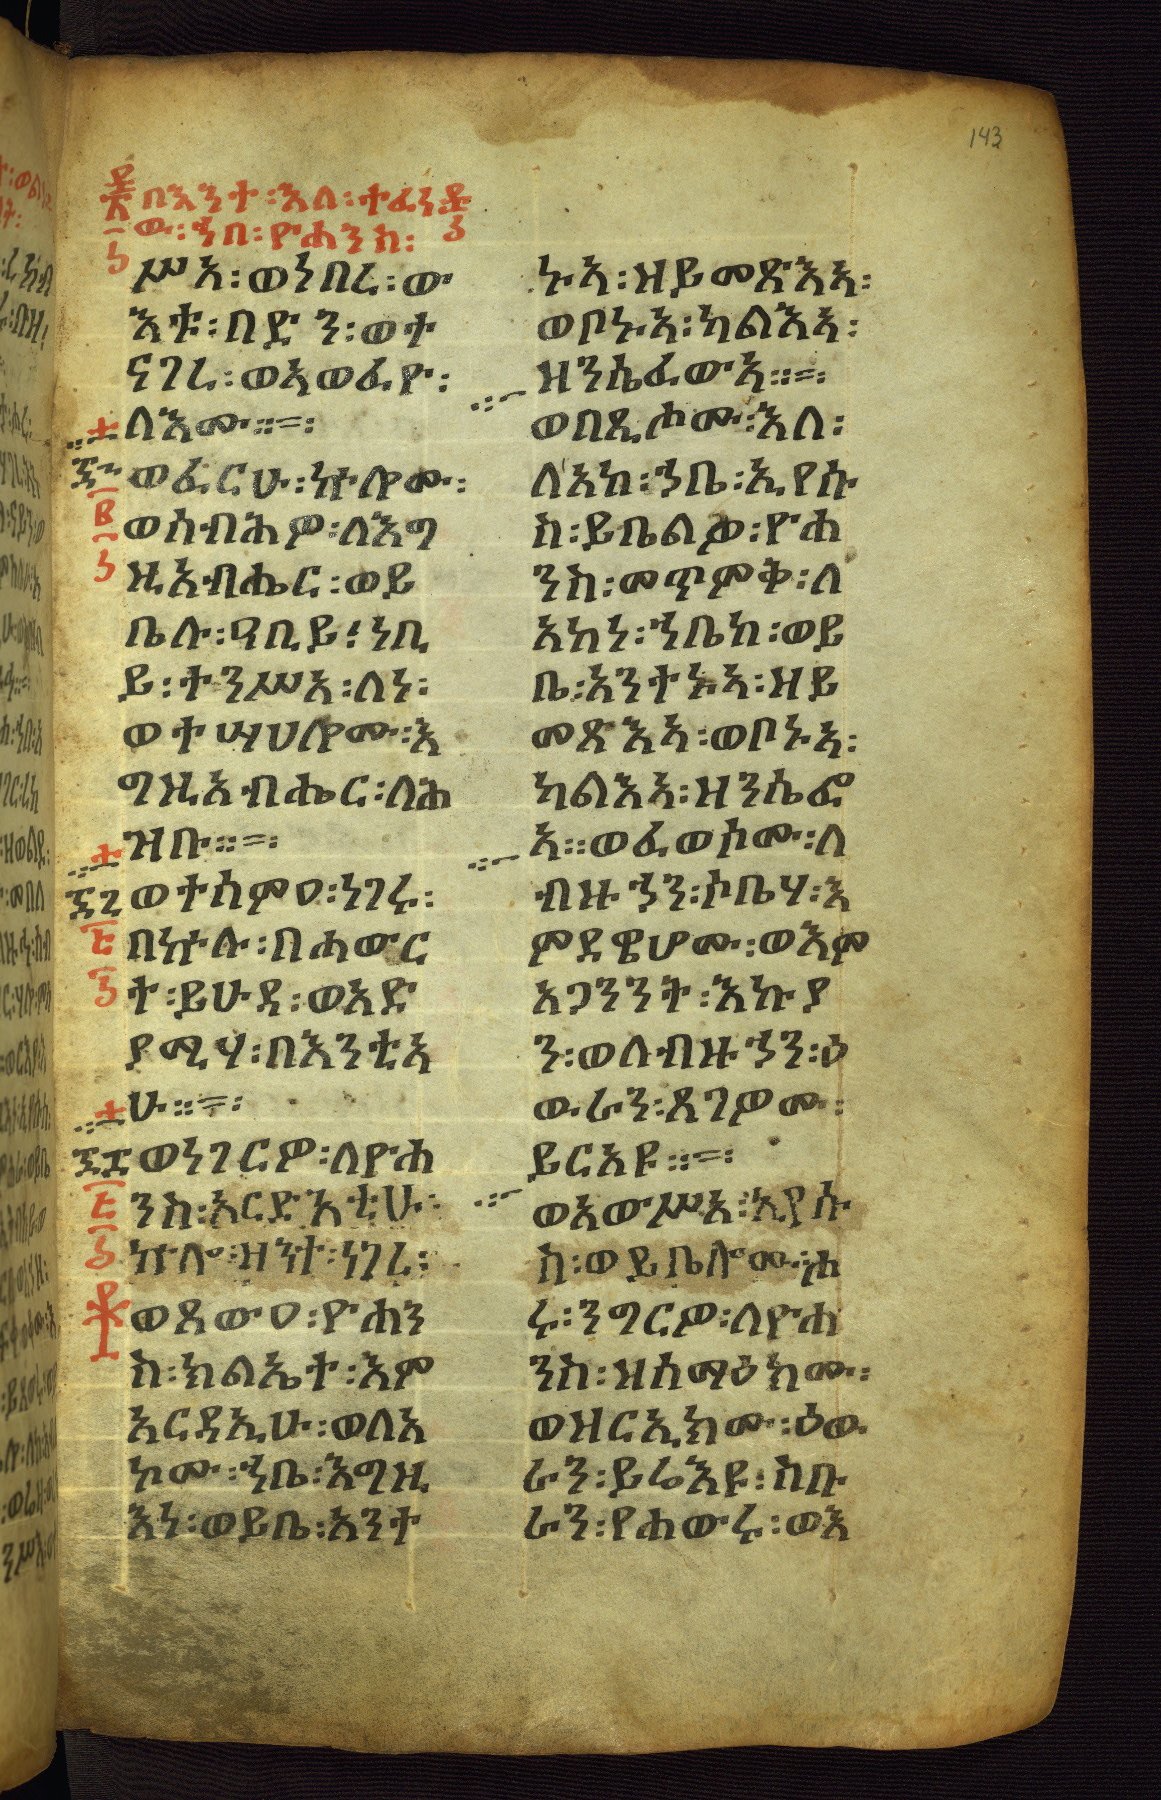 143
በእንተ፡እለ፡ተፈነዉ
ው፡ኀበ፡ዮሐንስ፡
ሥአ፡ወነበረ፡ው
እቱ፡በድን፡ወተ
ናገረ፡ወአወፈዮ፡
ለእሙ።=፡
ወፈርሁ፡ኵሎሙ፡
ወሰብሕዎ፡ለእግ
ዚአብሔር፡ወይ
ቤሉ፡ዓቢይ፡ነቢ
ይ፡ተንሥአ፡ለነ፡
ወተሣሀሎሙ፡እ
ግዚአብሔር፡ለሕ
ዝቡ።=፡
ወተሰምዐ፡ነገሩ፡
በኵሉ፡በሐውር
ት፡ይሁዳ፡ወአድ
ያሚሃ፡በእንቲአ
ሁ።=፡
ወነገርዎ፡ለዮሐ
ንስ፡አርድእቲሁ፡
ኵሎ፡ዝንተ፡ነገረ፡
ወጸውዐ፡ዮሐን
ስ፡ክልኤተ፡እም
አርዳኢሁ፡ወለአ
ኮሙ፡ኀቤ፡እግዚ
እነ፡ወይቤ፡አንተ
ኑአ፡ዘይመጽእአ፡
ወቦኑአ፡ካልእአ፡
ዘንሴፈውአ።=፡
ወበጺሖሙ፡እለ፡
ለአከ፡ኀቤ፡ኢየሱ
ስ፡ይቤልዎ፡ዮሐ
ንስ፡መጥምቅ፡ለ
አከነ፡ኀቤከ፡ወይ
ቤ፡አንተኑአ፡ዘይ
መጽእአ፡ወቦኑአ፡
ካልእአ፡ዘንሴፎ
አ።ወፈወሶሙ፡ለ
ብዙኃን፡ሶቤሃ፡እ
ምደዌሆሙ፡ወእም
አጋንንት፡እኩያ
ን፡ወለብዙኃን፡ዕ
ውራን፡ጸገዎሙ፡
ይርአዩ።=፡
ወአውሥአ፡ኢየሱ
ስ፡ወይቤሎሙ፡ሐ
ሩ፡ንግርዎ፡ለዮሐ
ንስ፡ዘሰማዕክሙ፡
ወዝርኢክሙ፡ዕው
ራን፡ይሬእዩ፡ስቡ
ራን፡የሐውሩ፡ወእ